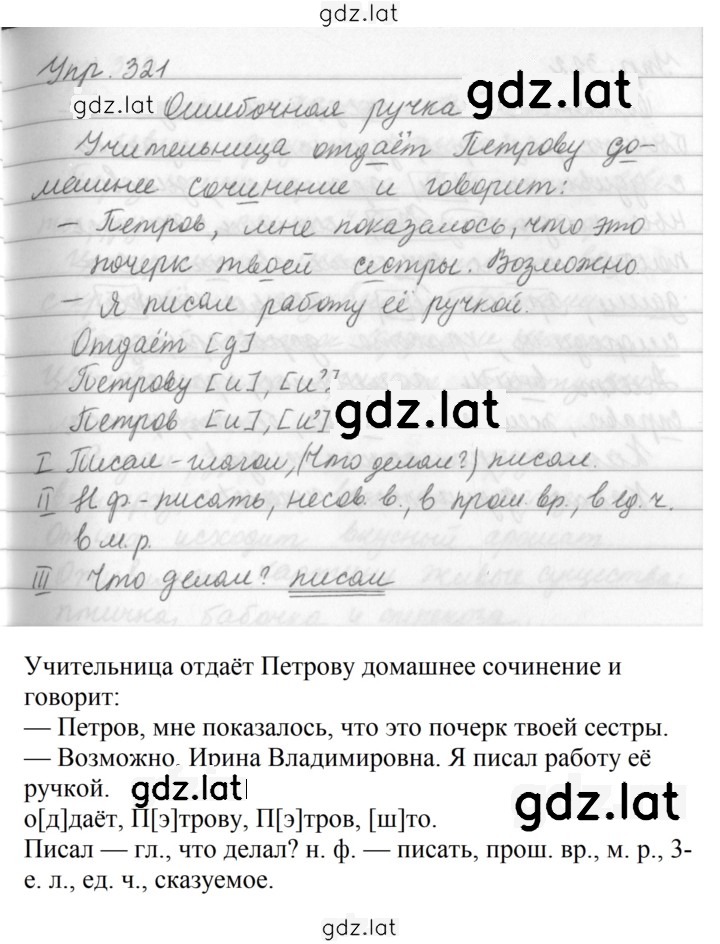 gdz.lat
Упр. 321
gdz.lat Ошибочная ручка gdz.lat
Учительница отдаёт Петрову до-
машнее сочинение и говорит:
– Петров, мне показалось, что это
почерк твоей сестры. Возможно
– Я писал работу её ручкой.
Отдаёт [д]
Петрову [и], [и³]
gdz.lat
Петров [и], [и³]
I Писал – глагол, (Что делал?) писал.
II Н.ф – писать, несов. в., в прош. вр., в ед. ч.
в м. р.
III Что делал? писал
Учительница отдаёт Петрову домашнее сочинение и
говорит:
— Петров, мне показалось, что это почерк твоей сестры.
— Возможно, Ирина Владимировна. Я писал работу её
ручкой.
gdz.lat
gdz.lat
о[д]даёт, П[э]трову, П[э]тров, [ш]то.
Писал — гл., что делал? н. ф. — писать, прош. вр., м. р., 3-
е. л., ед. ч., сказуемое.
gdz.lat